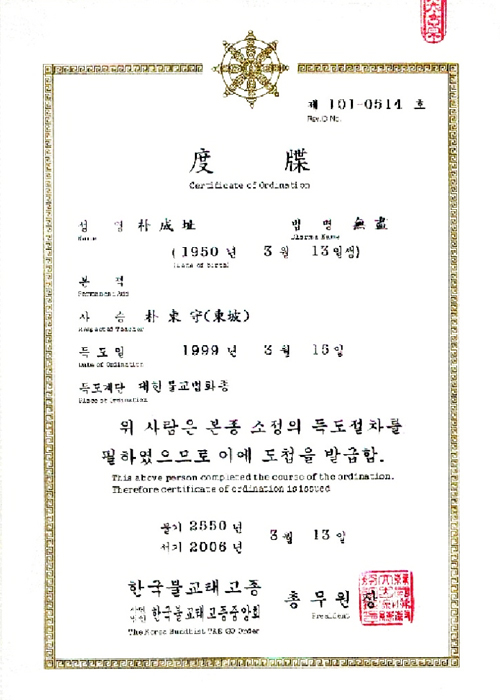 제 101-0514 호
Rev.O No.
度 牒
Certificate of Ordination
성 명 朴成址 법 명 無盡
Name Dharma Name
(1950 년 3 월 13 일생)
(Date of birth)
본 적
Permanent Add
사 승 朴東守(東坡)
Respected Teacher
득 도 일 1999 년 3 월 15 일
Date of Ordination
득도계단 대한불교법화종
Place of Ordination
위 사람은 본종 소정의 득도절차를
필하였으므로 이에 도첩을 발급함.
This above person completed the course of the ordination.
Therefore certificate of ordination is issued
불기 2550 년
서기 2006 년 3 월 13 일
한국불교태고종
한국불교태고종중앙회 총 무 원 장
The Korea Buddhist TAE GO Order President